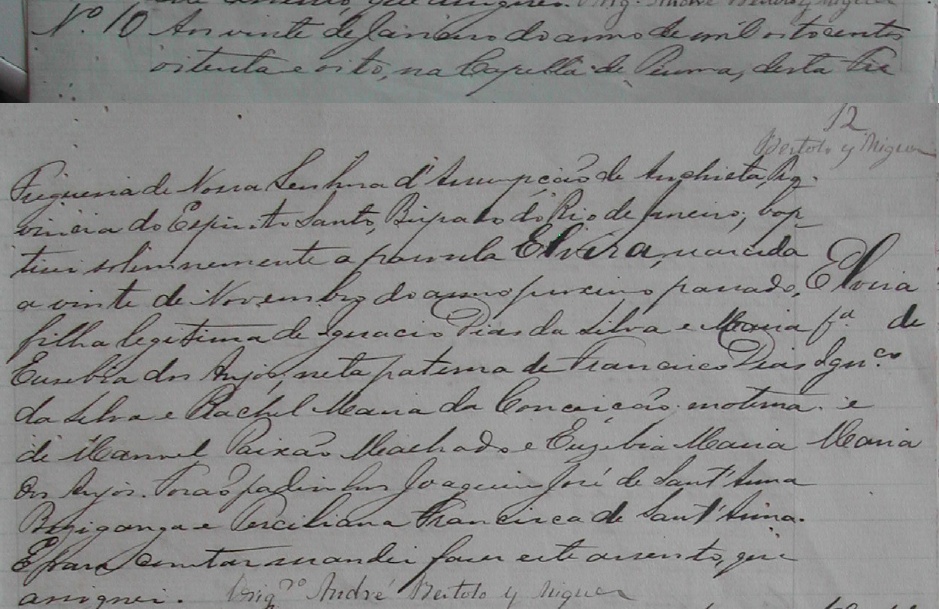 André Bertolo y Miguer
Nº. 10 Aos vinte de Janeiro do anno de mil oitocentos
oitenta e oito, na Capella de Piuma, desta Fre
12
Bertolo y Miguer
Freguesia de Nossa Senhora d'Assumpção de Anchieta, Pro-
vincia do Espirito Santo, Bispado do Rio de Janeiro, bap
tisei solemnemente a parvula Elvira, nascida
a vinte de Novembro do anno proximo passado, Elvira
filha legitima de Ignacio Dias da Silva e Maria fª de
Eusebia dos Anjos, neta paterna de Francisco Dias Ign.co
da Silva e Rachel Maria da Conceição; materna e
de Manoel Paixão Machado e Euzebia Maria Maria
dos Anjos. Forão padrinhos Joaquim José de Sant'Anna
e Perciliana Francisca de Sant'Anna.
E para constar mandei fazer este assento, que
assignei. Vigrº André Bertolo y Miguer